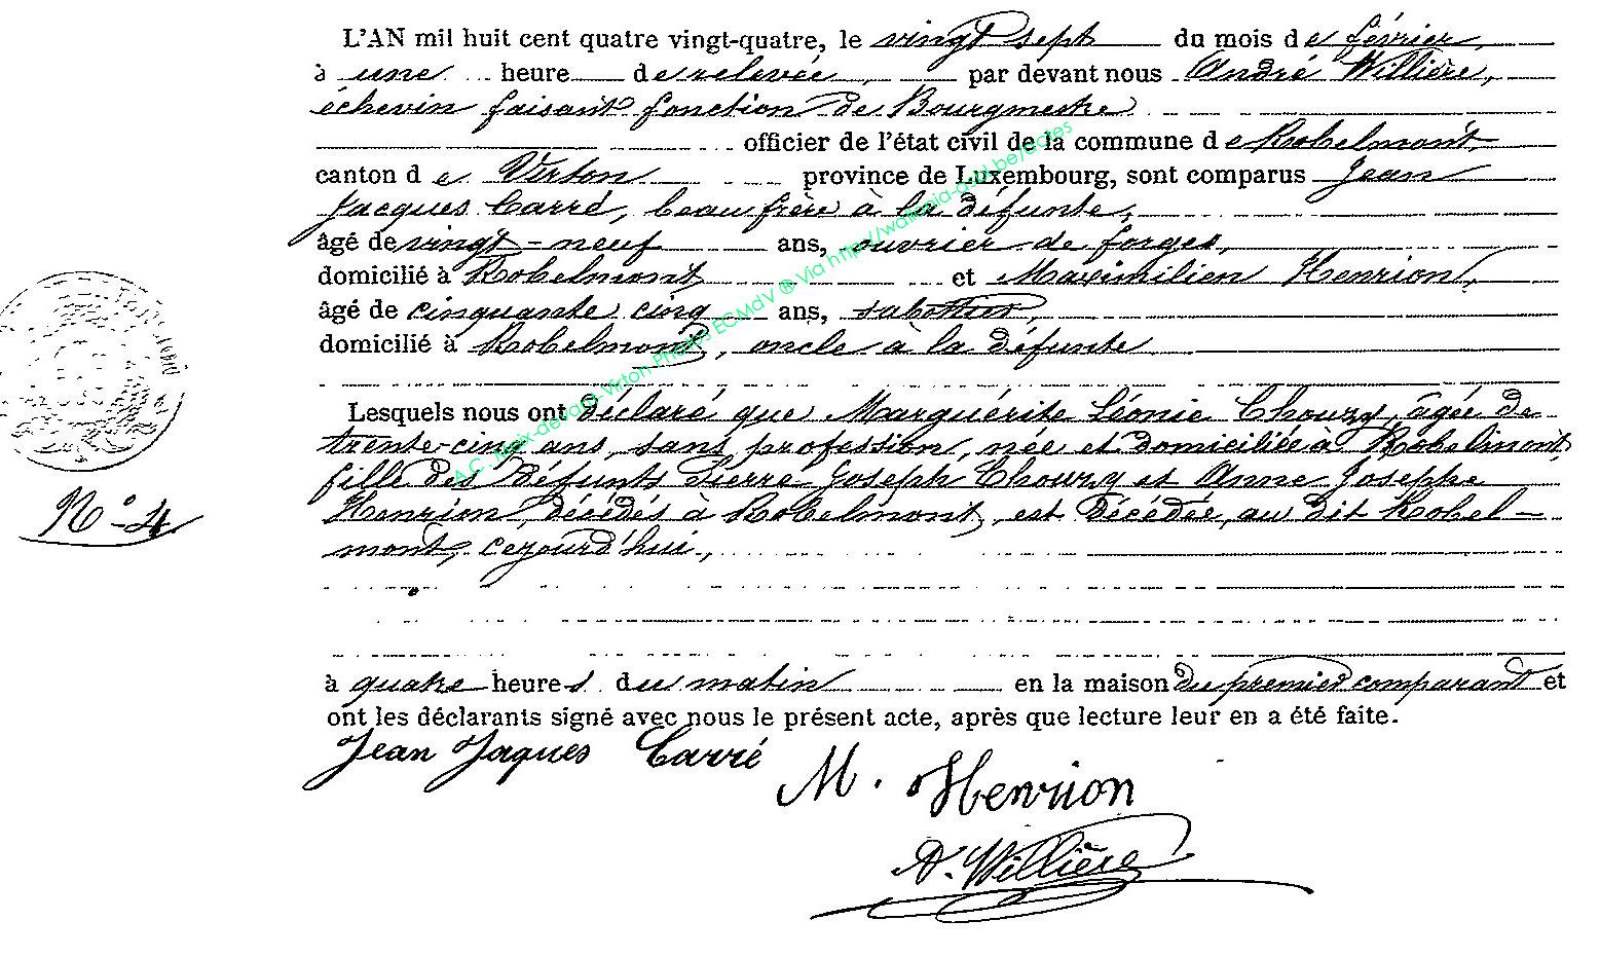 L'AN mil huit cent quatre vingt-quatre, le vingt sept du mois de février,
à une heure de relevée, par devant nous André Willière,
échevin faisant fonction de Bourgmestre
officier de l'état civil de la commune de Robelmont
canton de Virton province de Luxembourg, sont comparus Jean
Jacques Carré, beau frère à la défunte,
âgé de vingt-neuf ans, ouvrier de forges,
domicilié à Robelmont et Maximilien Henrion,
âgé de cinquante cinq ans, sabottier,
domicilié à Robelmont, oncle à la défunte
Lesquels nous ont déclaré que Marguérite Léonie Thoury, âgée de
trente-cinq ans, sans profession, née et domiciliée à Robelmont,
fille des défunts Pierre Joseph Thoury et Anne Josephe
Henrion, décédés à Robelmont, est décédée, au dit Robel-
N° 4
mont, cejourd'hui,
à quatre heures du matin en la maison du premier comparant et
ont les déclarants signé avec nous le présent acte, après que lecture leur en a été faite.
Jean Jaques Carré
M. Henrion
A. Willière
A.C. Meix-devant-Virton Photos ECMdV ® Via http://wallonia-asbl.be/actes